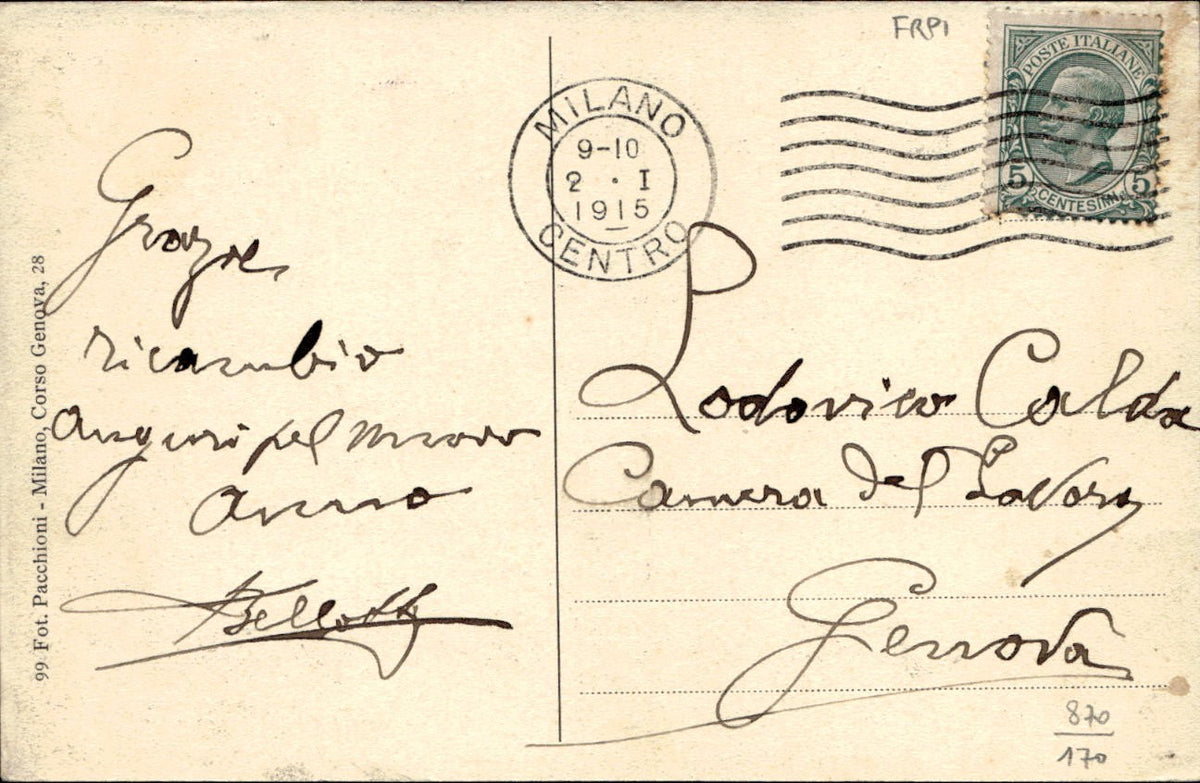 FRPI
POSTE ITALIANE
5 CENTESIMI 5
MILANO
9-10
2 · I
1915
CENTRO
Grazie
ricambio
auguri pel nuovo
anno
Bellotti
Lodovico Calda
Camera del Lavoro
Genova
870
170
99 Fot. Pacchioni - Milano, Corso Genova, 28